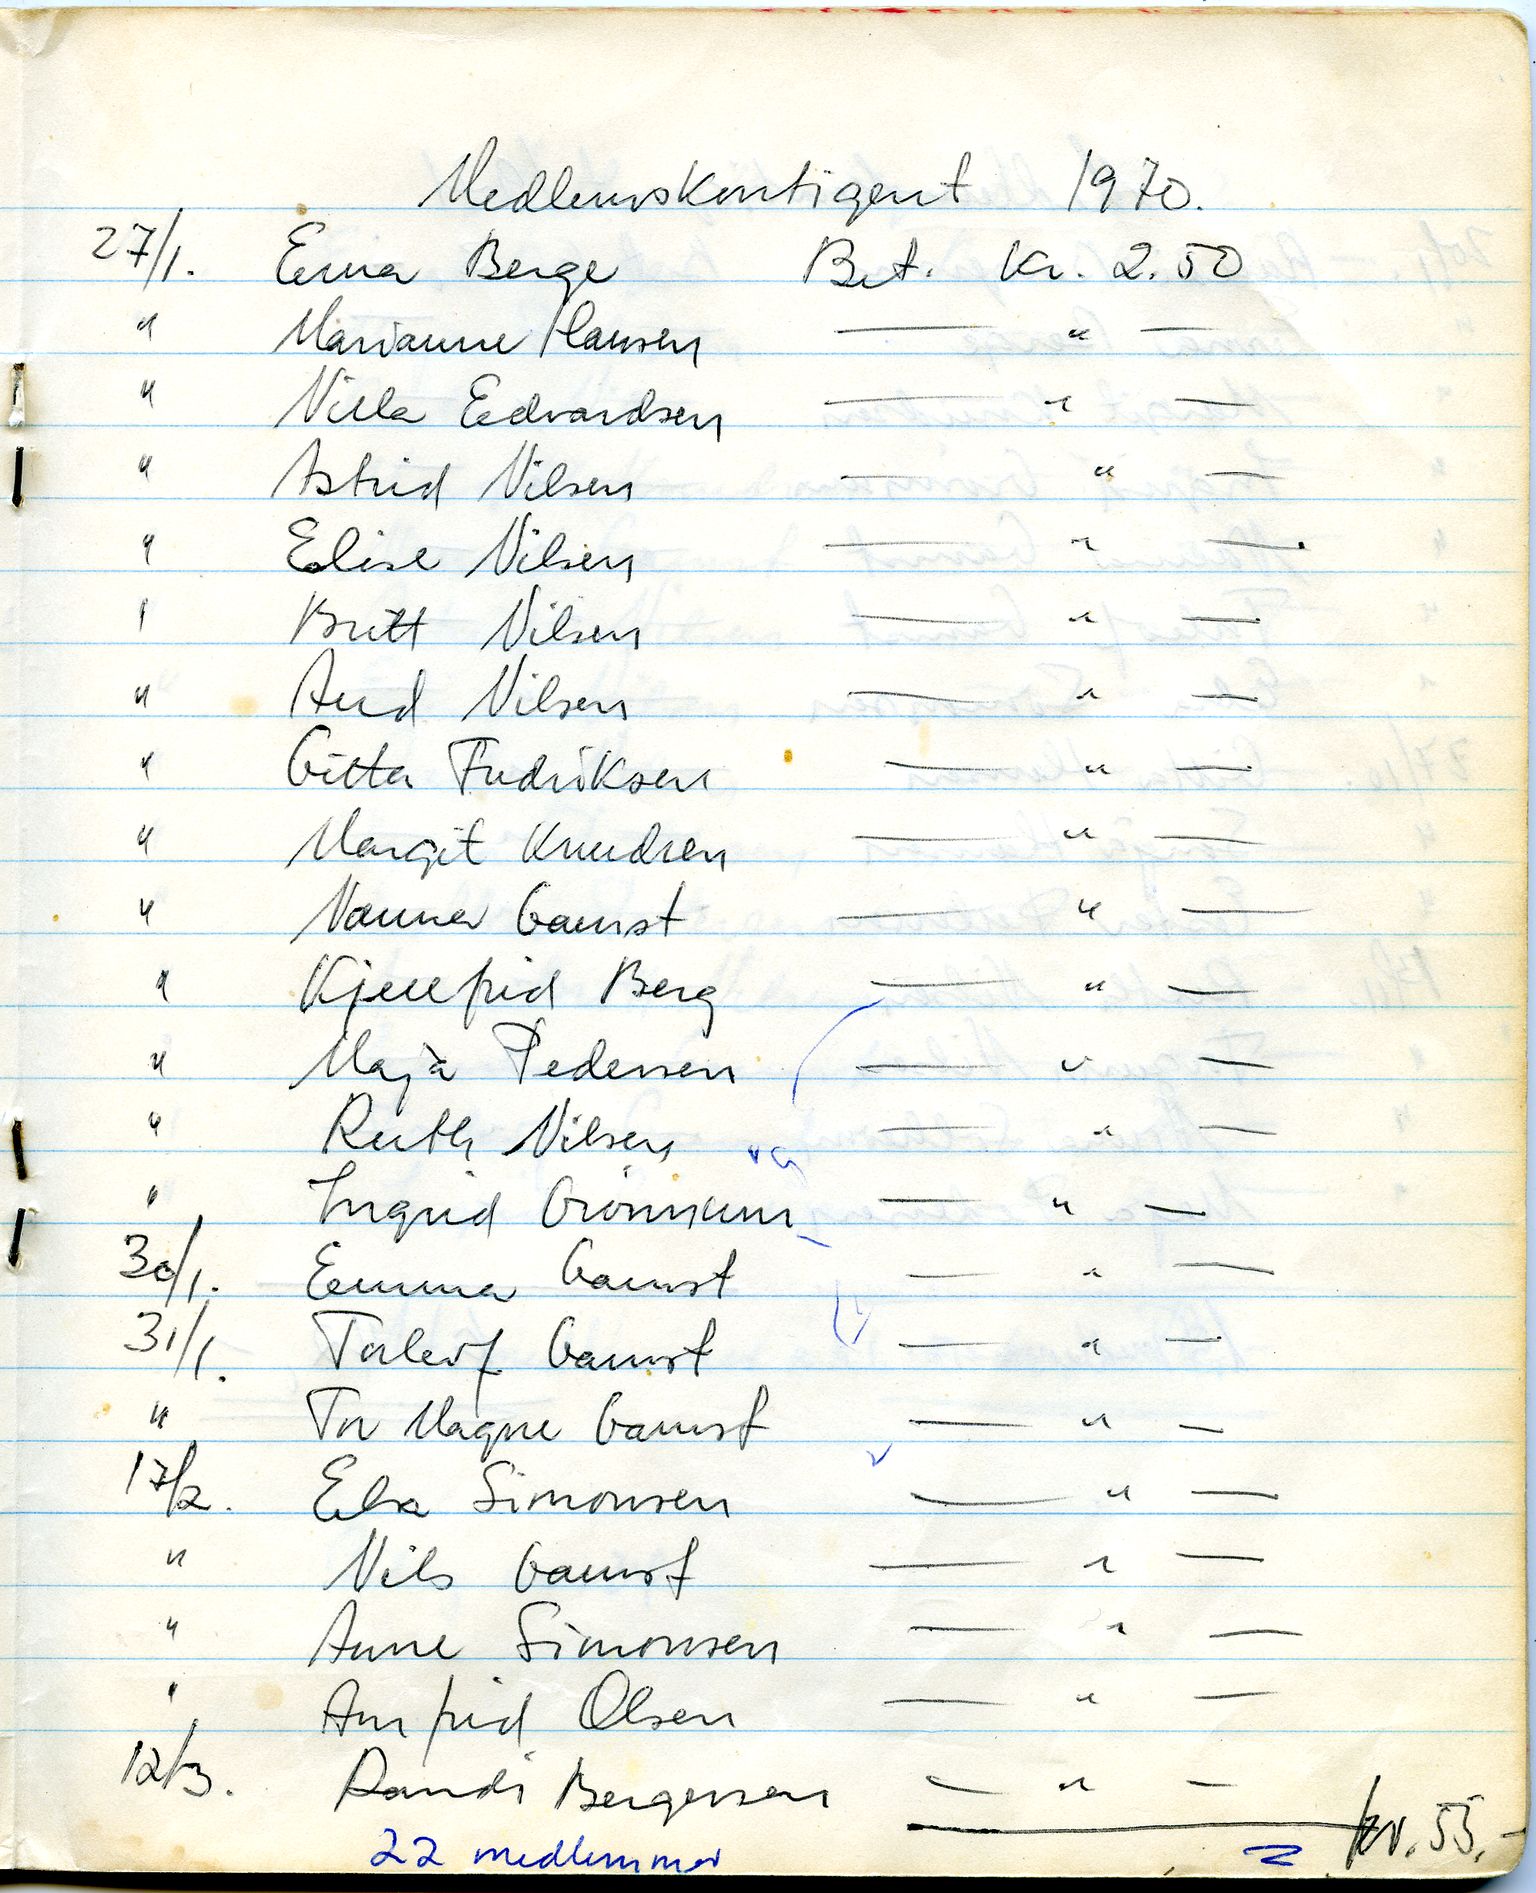 Medlemskontigent 1970.
27/1. Erna Berge Bet. Kr. 2.50
" Marianne Hansen — " —
" Villa Edvardsen — " —
" Astrid Nilsen — " —
" Elise Nilsen — " —
" Britt Nilsen — " —
" Aud Nilsen — " —
" Gitta Fredriksen — " —
" Margit Knudsen — " —
" Nanna Gamst — " —
" Kjellfrid Berg — " —
" Maja Pedersen — " —
" Ruth Nilsen — " —
" Ingrid — " —
30/1. Emma Gamst — " —
31/1. Torleif Gamst — " —
" Tor Magne Gamst — " —
17/2. Elsa Simonsen — " —
" Nils Gamst — " —
" Anne Simonsen — " —
" Arnfrid Olsen — " —
12/3. Randi Bergersen — " —
kr. 55,-
22 medlemmer